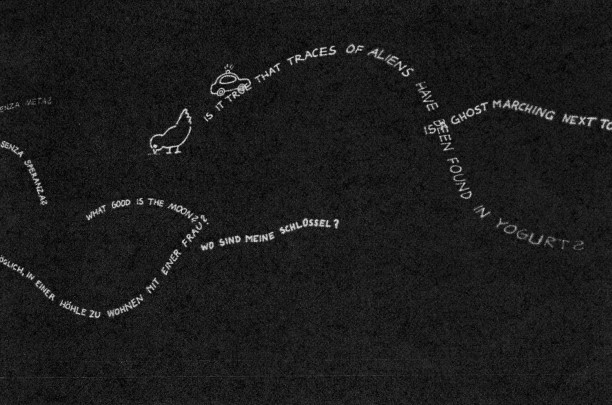 ENZA META?
SENZA SPERANZA?
IS IT TRUE THAT TRACES OF ALIENS HAVE BEEN FOUND IN YOGURT?
IS A GHOST MARCHING NEXT TO
WHAT GOOD IS THE MOON?
WO SIND MEINE SCHLÜSSEL?
ÖGLICH, IN EINER HÖHLE ZU WOHNEN MIT EINER FRAU?